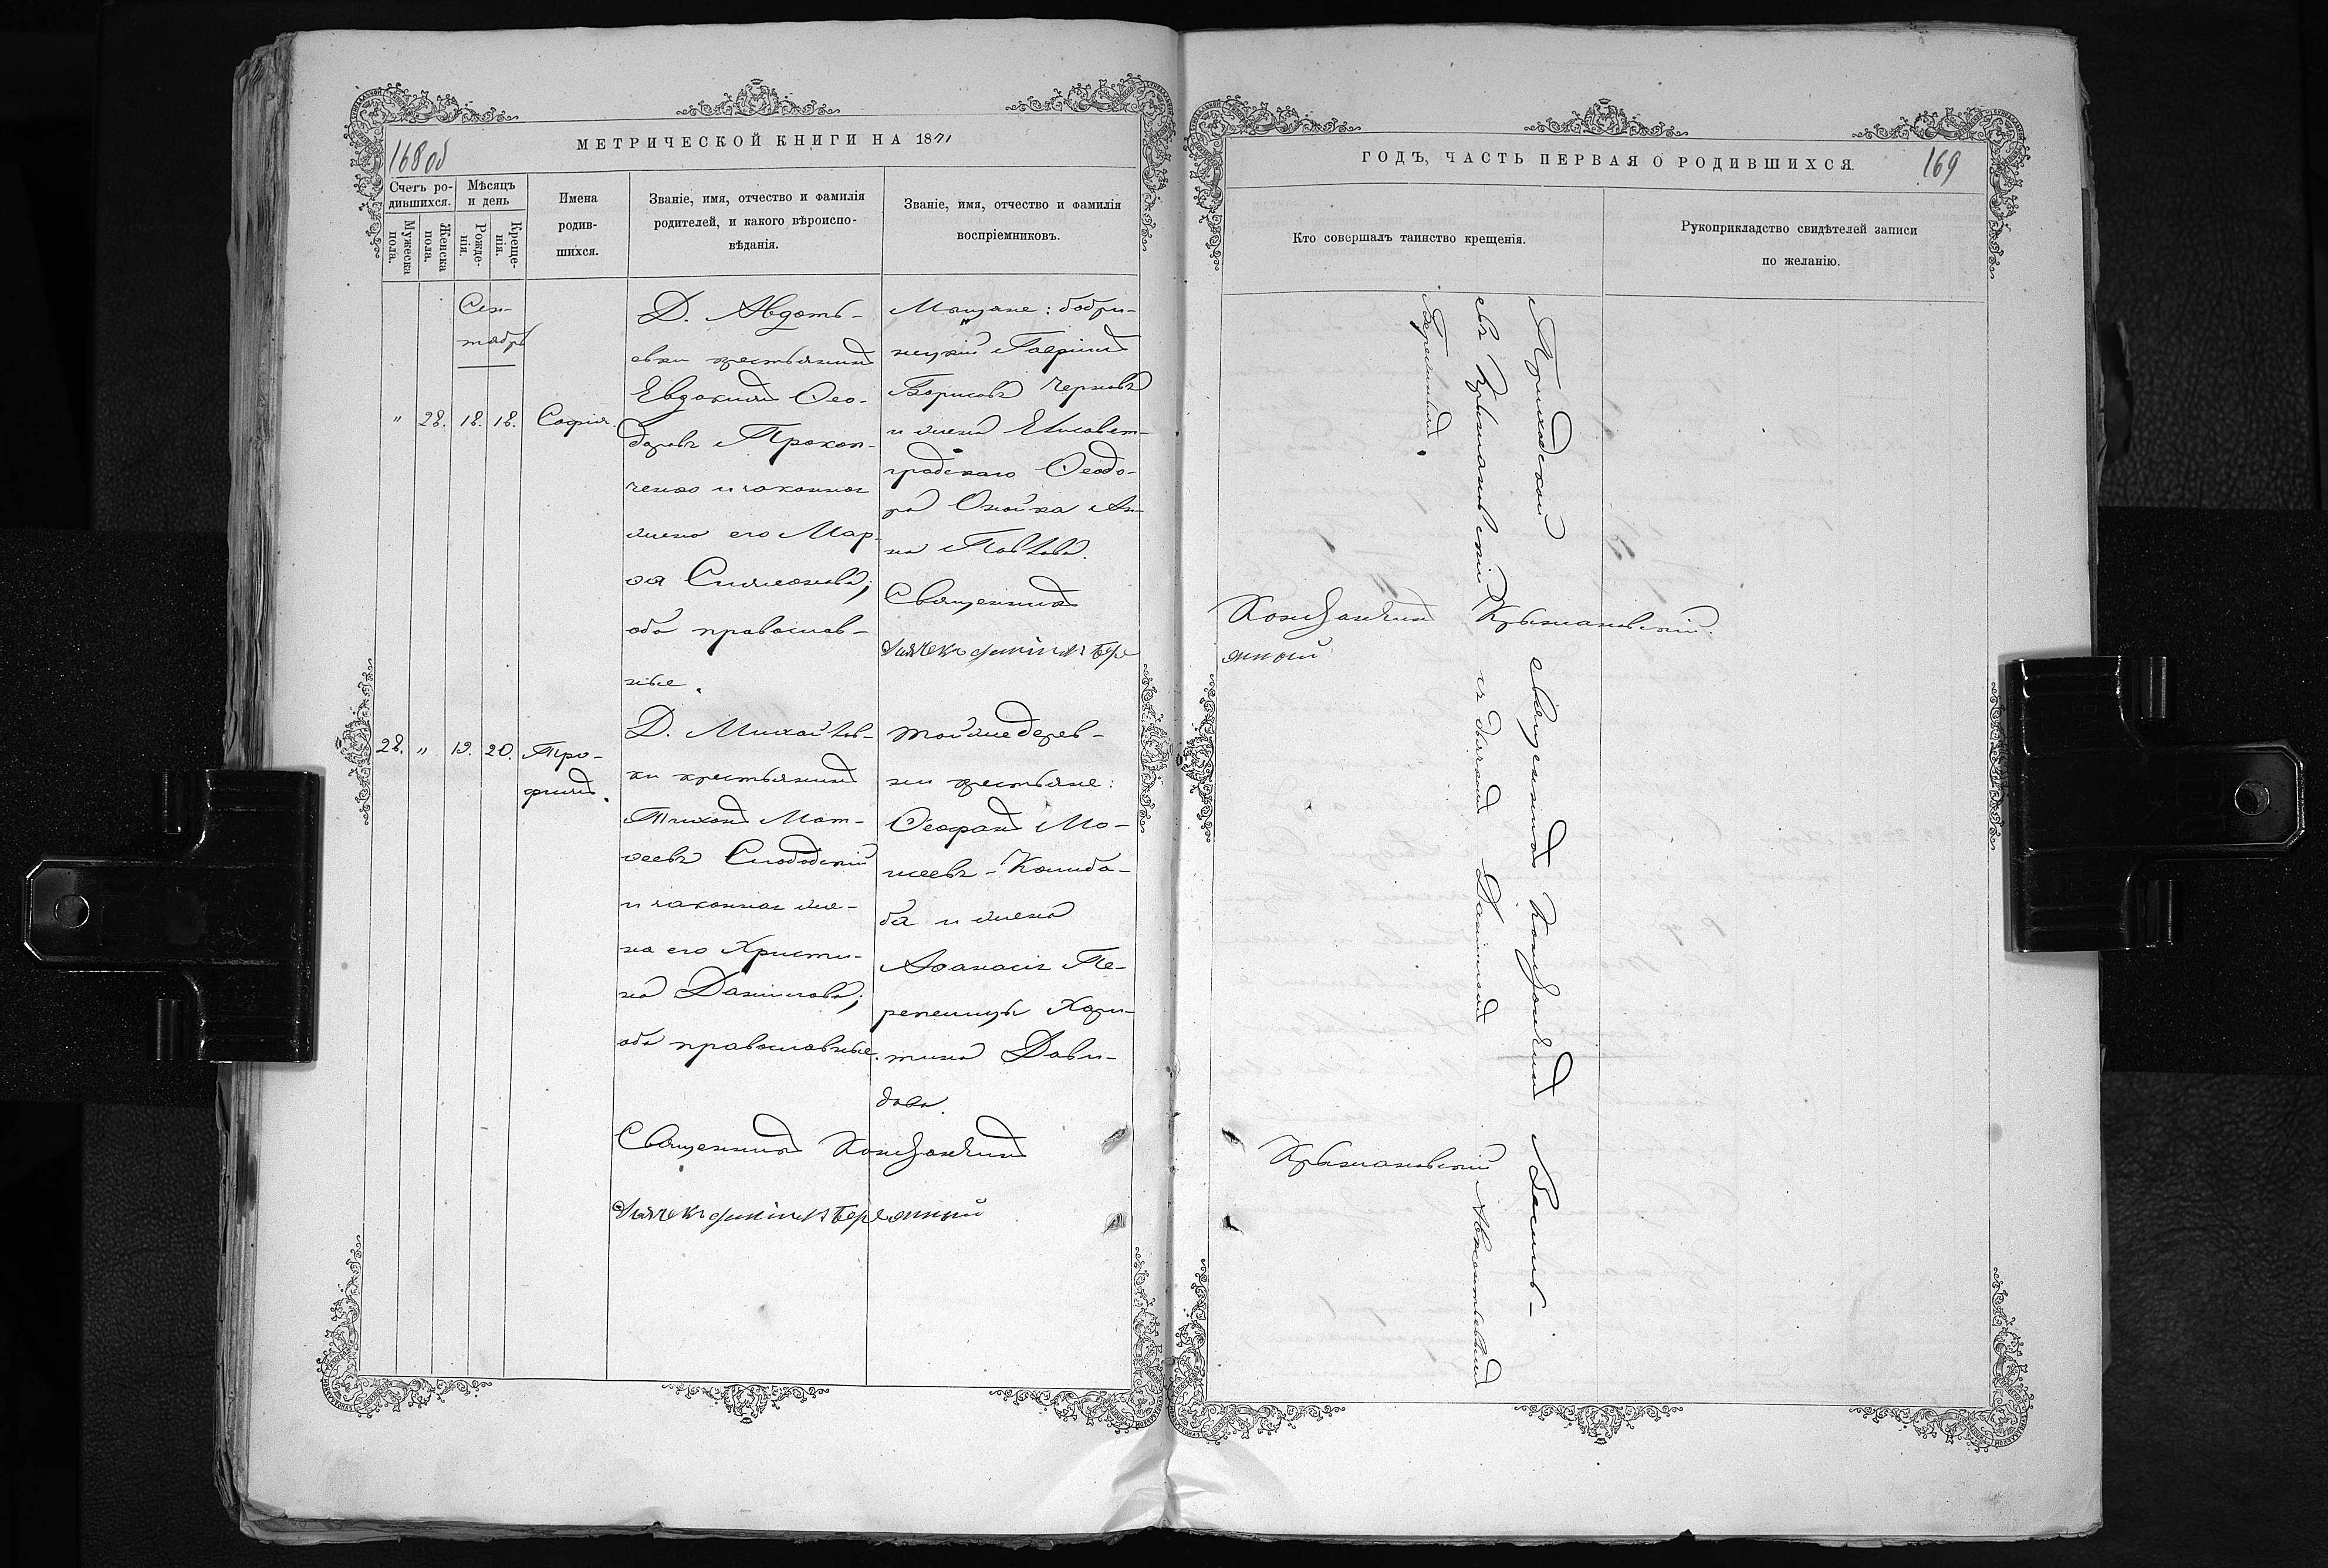 МЕТРИЧЕСКОЙ КНИГИ НА 1871
168 об
Счетъ ро-
дившихся.
Мужеска
пола.
Женска
пола.
Мѣсяцъ
и день
Рожде-
нія.
Креще-
нія.
Имена
родив-
шихся.
Званіе, имя, отчество и фамилія
родителей, и какого вѣроиспо-
вѣданія.
Званіе, имя, отчество и фамилія
воспріемниковъ.
Сен-
тябрь
" 28. 18. 18. Софія.
Д. Авдоть-
евки крестьянинъ
Евдокимъ Ѳео-
доровъ Прокоп-
ченко и законная
жена его Мар-
ѳа Симеонова;
оба православ-
ные.
Мѣщане: бобри-
нецкій Гавріилъ
Борисовъ Черновъ
и жена Елисавет-
градскаго Ѳеодо-
ра Онойка Ан-
на Павлова.
Священникъ
28. " 19. 20. Тро-
фимъ.
Д. Михайлов-
ки крестьянинъ
Тихонъ Мат-
ѳеевъ Слободскій
и законная же-
на его Христи-
на Даніилова;
оба православные.
той же дерев-
ни крестьяне:
Ѳеофанъ Мо-
исеевъ - Калиба-
ба и жена
Аѳанасія Пе-
репелицы Хари-
тина Дави-
дова.
Священникъ Константинъ
ГОДЪ, ЧАСТЬ ПЕРВАЯ О РОДИВШИХСЯ.
169
Кто совершалъ таинство крещенія.
Рукоприкладство свидѣтелей записи
по желанію.
Приходской священникъ Константинъ Василь-
евъ Крыжановскій съ дьякомъ Даніиломъ Авксентьевымъ
Беремяннымъ.
Константинъ Крыжановскій.
Крыжановскій